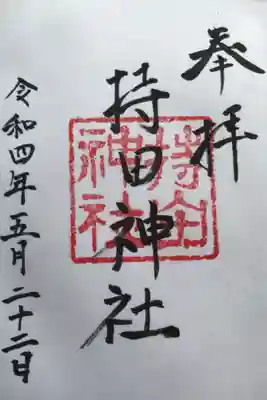 奉拝
持田神社
持田
神社
令和四年五月二十二日